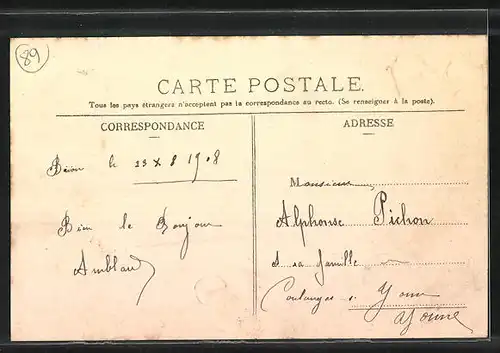 89
CARTE POSTALE.
Tous les pays étrangers n'acceptent pas la correspondance au recto. (Se renseigner à la poste).
CORRESPONDANCE
ADRESSE
le 23 X 8 1908
Monsieur
Alphonse Pichon
Bien le Bonjour
& sa famille
Coulanges s. Yonne
Yonne